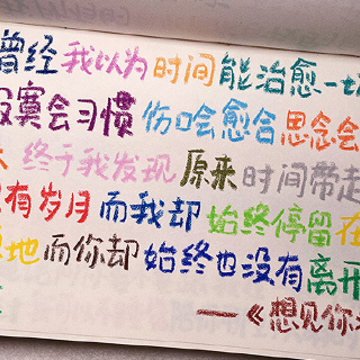 曾经我以为时间能治愈一切
寂寞会习惯伤口会愈合思念会
终于我发现原来时间带走
有岁月而我却始终停留在
原地而你却始终也没有离开
——《想见你